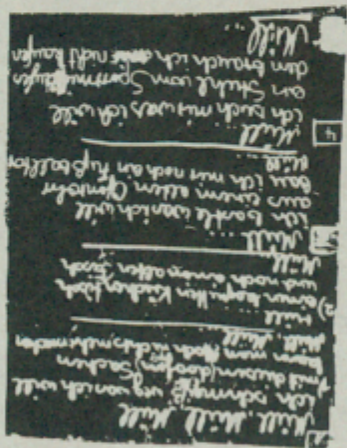 Müll, Müll, Müll
Ich schmeiß weg was ich will
mit diesen (doofen) Sachen
kann man doch nichts mehr machen
Müll, Müll
2) einen kaputten Küchentisch
und noch einen alten Fisch
Müll
Müll...
ich bastle was ich will
aus einem alten Ofenrohr
bau ich mir noch ein Fußballtor
Müll
4
Müll...
ich such mir was ich will
ein Stuhl vom
den brauch ich nicht kaufen
Müll...